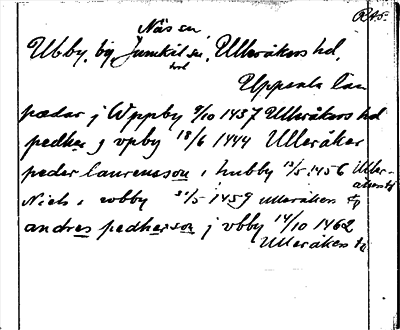 RA5.
Näs sn,
Ubby, by, Jumkil sn, Ulleråkers hd,
Uppsala län
pædar j Wppby 9/10 1437 Ulleråkers hd
pedher j vpby 18/6 1444 Ulleråker
peder laurensson i hubby 13/5 1456 Uller-
åkers hd
Niels i wbby 31/5 1459 Ulleråkers
andres pedherson j vbby 14/10 1462
Ulleråkers